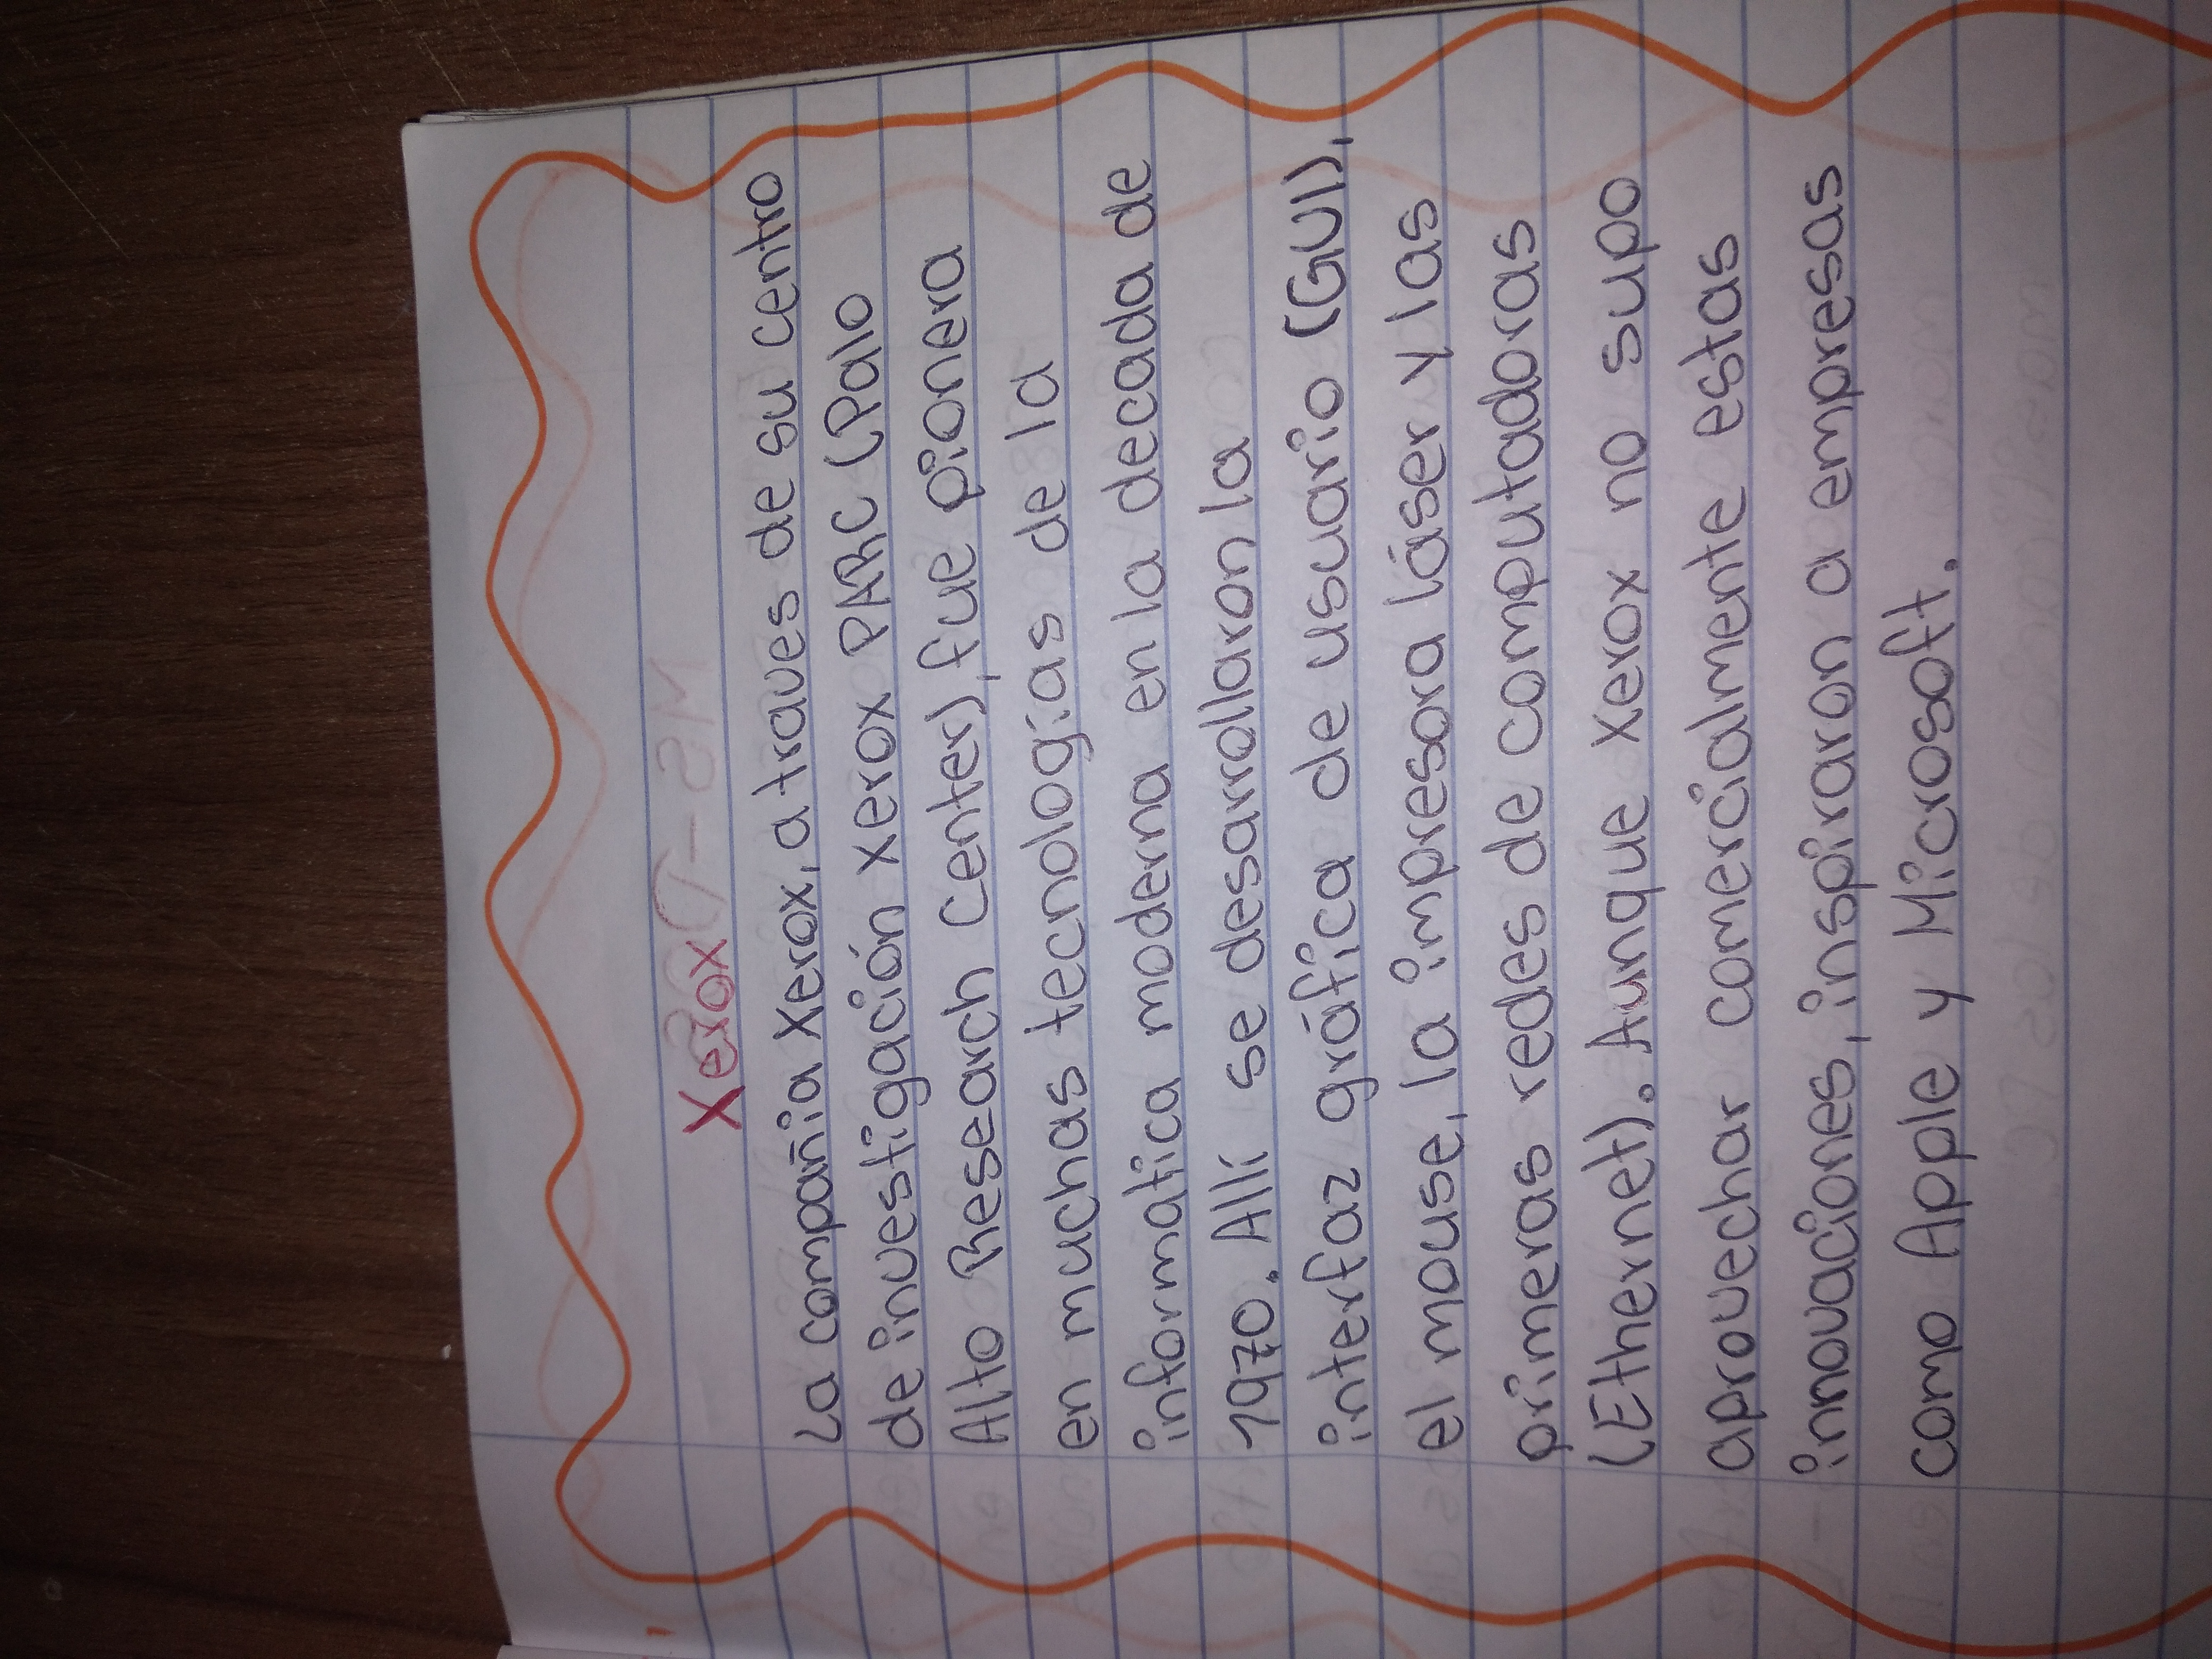 Xerox
La compañia Xerox, a traves de su centro
de investigación Xerox PARC (Palo
Alto Research Center), fue pionera
en muchas tecnologias de la
informatica moderna en la decada de
1970. Allí se desarrollaron la
interfaz gráfica de usuario (GUI),
el mouse, la impresora láser y las
primeras redes de computadoras
(Ethernet). Aunque Xerox no supo
aprovechar comercialmente estas
innovaciones, inspiraron a empresas
como Apple y Microsoft.